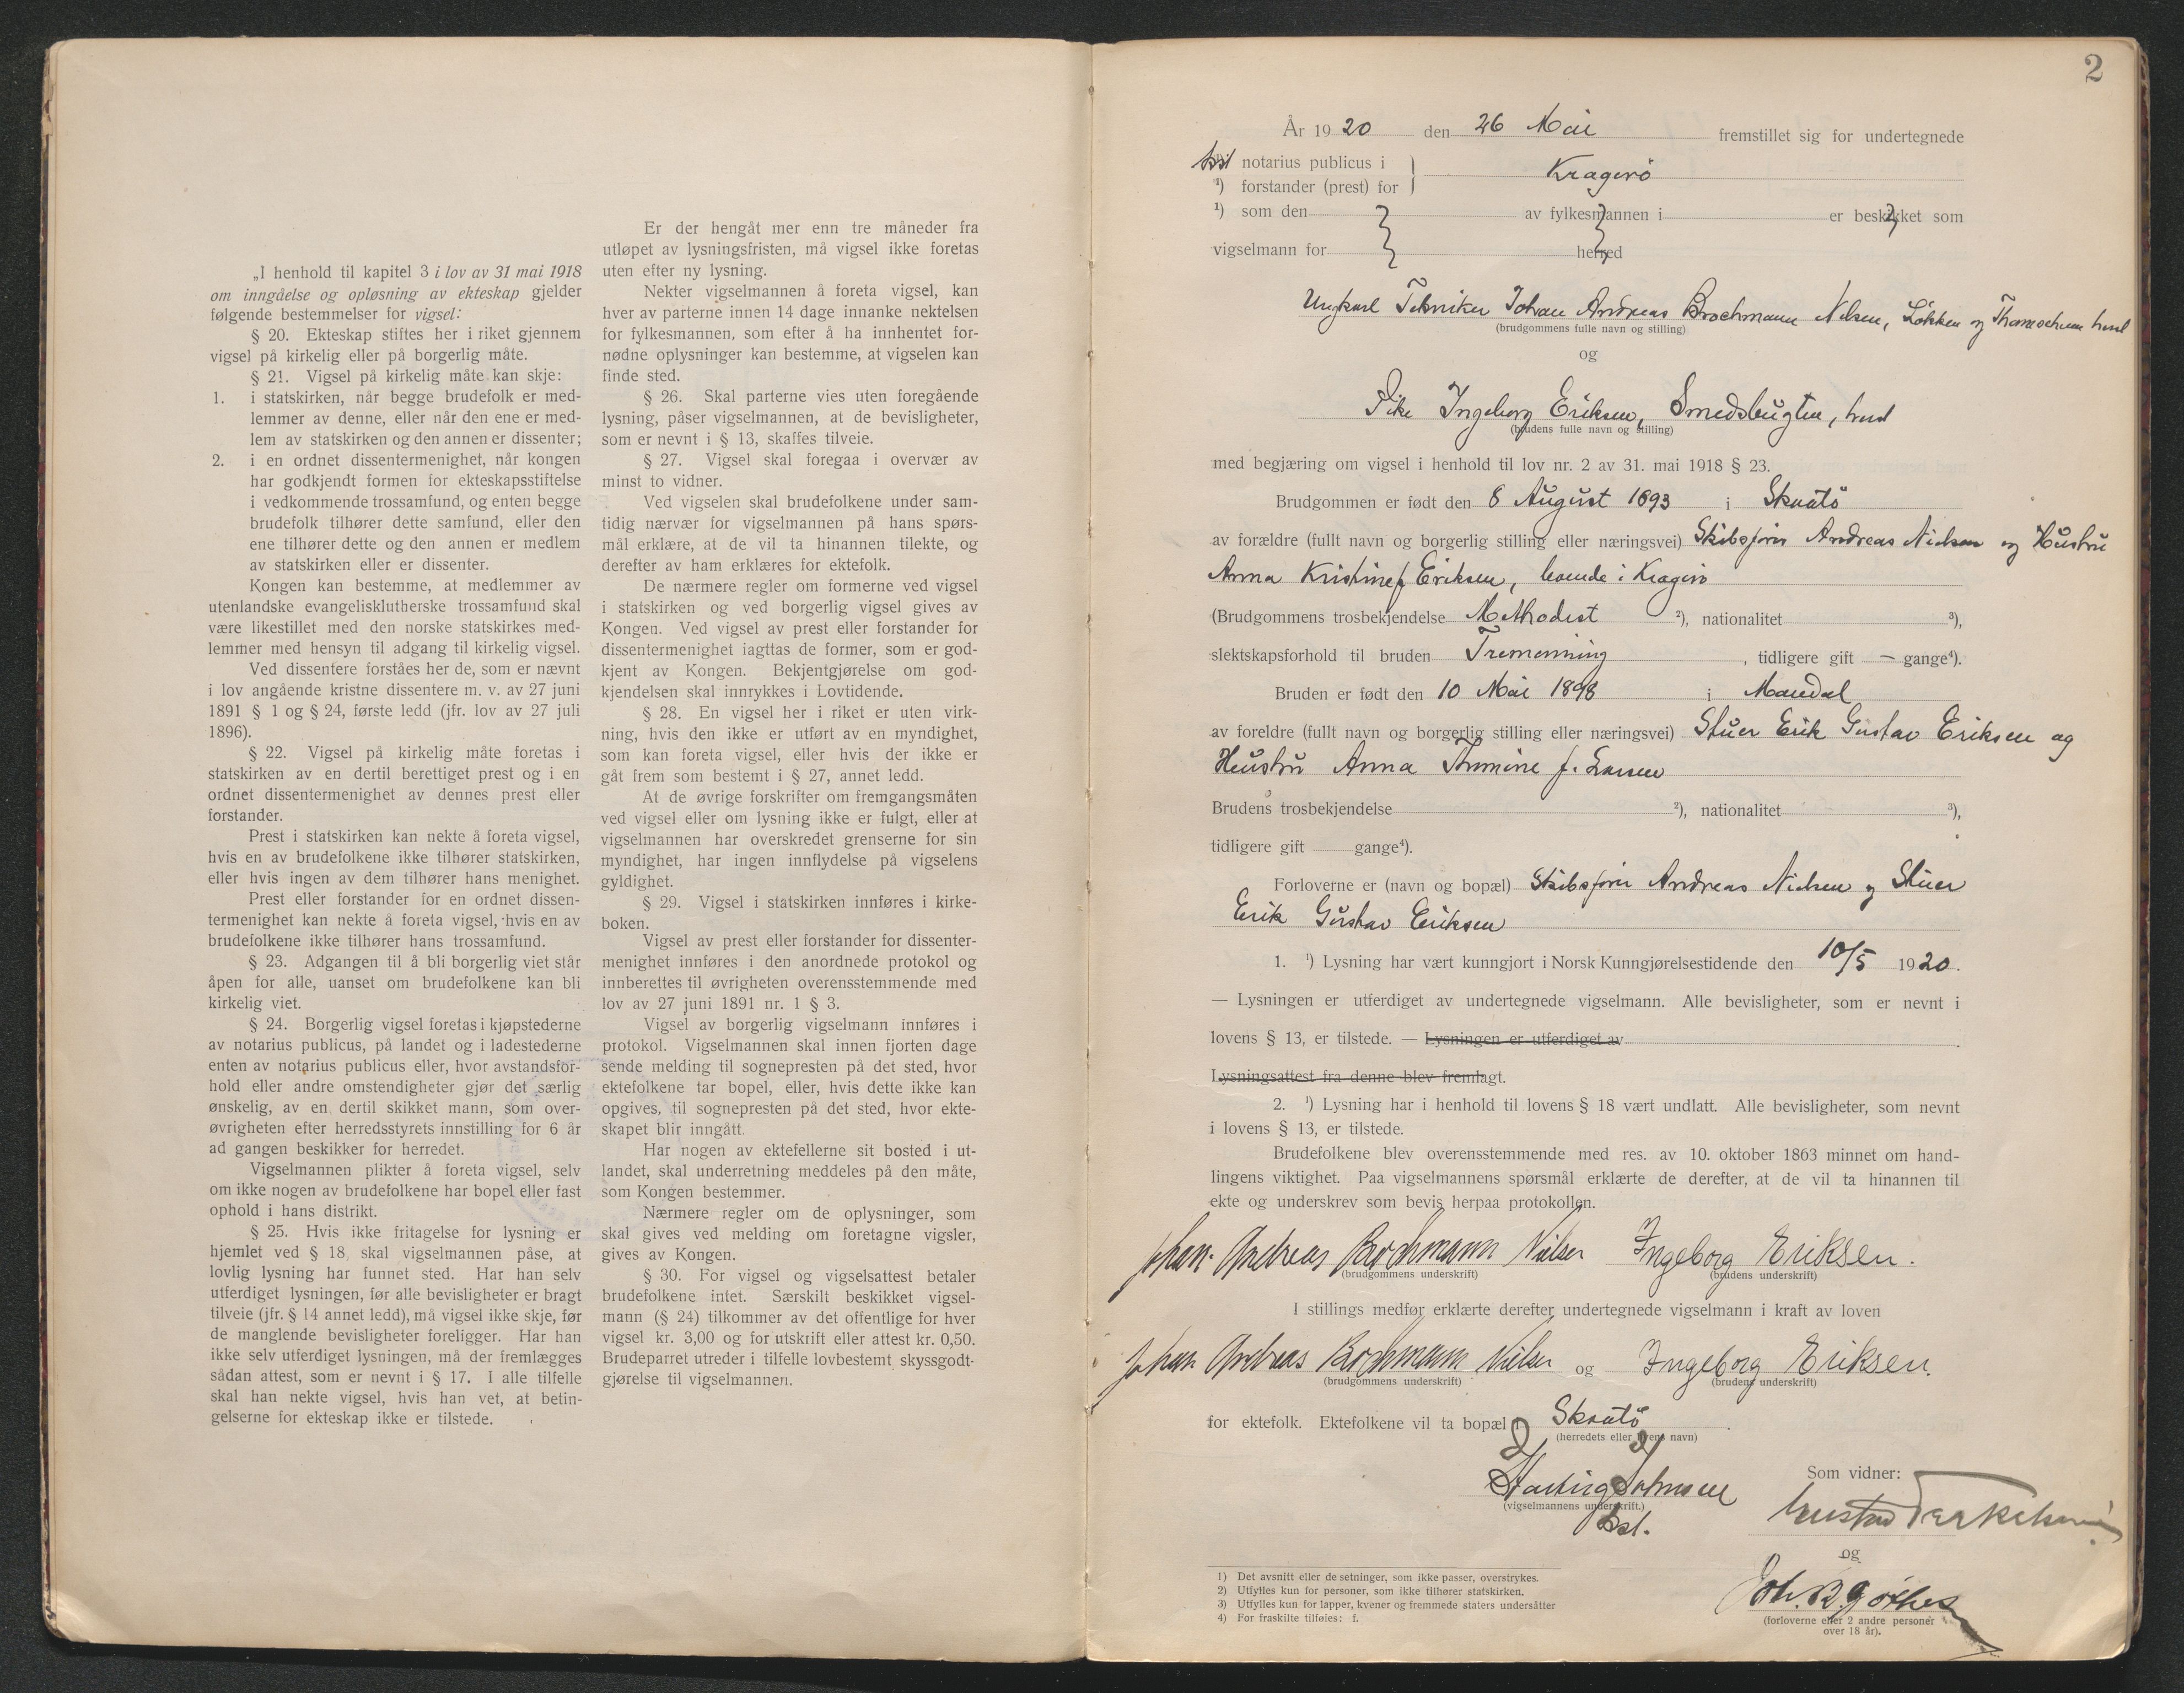 „I henhold til kapitel 3 i lov av 31 mai 1918
om inngåelse og opløsning av ekteskap gjelder
følgende bestemmelser for vigsel:
§ 20. Ekteskap stiftes her i riket gjennem
vigsel på kirkelig eller på borgerlig måte.
§ 21. Vigsel på kirkelig måte kan skje:
1. i statskirken, når begge brudefolk er med-
lemmer av denne, eller når den ene er med-
lem av statskirken og den annen er dissenter;
2. i en ordnet dissentermenighet, når kongen
har godkjendt formen for ekteskapsstiftelse
i vedkommende trossamfund, og enten begge
brudefolk tilhører dette samfund, eller den
ene tilhører dette og den annen er medlem
av statskirken eller er dissenter.
Kongen kan bestemme, at medlemmer av
utenlandske evangelisklutherske trossamfund skal
være likestillet med den norske statskirkes med-
lemmer med hensyn til adgang til kirkelig vigsel.
Ved dissentere forståes her de, som er nævnt
i lov angående kristne dissentere m. v. av 27 juni
1891 § 1 og § 24, første ledd (jfr. lov av 27 juli
1896).
§ 22. Vigsel på kirkelig måte foretas i
statskirken av en dertil berettiget prest og i en
ordnet dissentermenighet av dennes prest eller
forstander.
Prest i statskirken kan nekte å foreta vigsel,
hvis en av brudefolkene ikke tilhører statskirken,
eller hvis ingen av dem tilhører hans menighet.
Prest eller forstander for en ordnet dissen-
termenighet kan nekte å foreta vigsel, hvis en av
brudefolkene ikke tilhører hans trossamfund.
§ 23. Adgangen til å bli borgerlig viet står
åpen for alle, uanset om brudefolkene kan bli
kirkelig viet.
§ 24. Borgerlig vigsel foretas i kjøpstederne
av notarius publicus, på landet og i ladestederne
enten av notarius publicus eller, hvor avstandsfor-
hold eller andre omstendigheter gjør det særlig
ønskelig, av en dertil skikket mann, som over-
øvrigheten efter herredsstyrets innstilling for 6 år
ad gangen beskikker for herredet.
Vigselmannen plikter å foreta vigsel, selv
om ikke nogen av brudefolkene har bopel eller fast
ophold i hans distrikt.
§ 25. Hvis ikke fritagelse for lysning er
hjemlet ved § 18, skal vigselmannen påse, at
lovlig lysning har funnet sted. Har han selv
utferdiget lysningen, før alle bevisligheter er bragt
tilveie (jfr. § 14 annet ledd), må vigsel ikke skje, før
de manglende bevisligheter foreligger. Har han
ikke selv utferdiget lysningen, må der fremlægges
sådan attest, som er nevnt i § 17. I alle tilfelle
skal han nekte vigsel, hvis han vet, at betin-
gelserne for ekteskap ikke er tilstede.
Er der hengåt mer enn tre måneder fra
utløpet av lysningsfristen, må vigsel ikke foretas
uten efter ny lysning.
Nekter vigselmannen å foreta vigsel, kan
hver av parterne innen 14 dage innanke nektelsen
for fylkesmannen, som efter å ha innhentet for-
nødne oplysninger kan bestemme, at vigselen kan
finde sted.
§ 26. Skal parterne vies uten foregående
lysning, påser vigselmannen, at de bevisligheter,
som er nevnt i § 13, skaffes tilveie.
§ 27. Vigsel skal foregaa i overvær av
minst to vidner.
Ved vigselen skal brudefolkene under sam-
tidig nærvær for vigselmannen på hans spørs-
mål erklære, at de vil ta hinannen tilekte, og
derefter av ham erklæres for ektefolk.
De nærmere regler om formerne ved vigsel
i statskirken og ved borgerlig vigsel gives av
Kongen. Ved vigsel av prest eller forstander for
dissentermenighet iagttas de former, som er god-
kjent av Kongen. Bekjentgjørelse om god-
kjendelsen skal innrykkes i Lovtidende.
§ 28. En vigsel her i riket er uten virk-
ning, hvis den ikke er utført av en myndighet,
som kan foreta vigsel, eller hvis der ikke er
gåt frem som bestemt i § 27, annet ledd.
At de øvrige forskrifter om fremgangsmåten
ved vigsel eller om lysning ikke er fulgt, eller at
vigselmannen har overskredet grenserne for sin
myndighet, har ingen innflydelse på vigselens
gyldighet.
§ 29. Vigsel i statskirken innføres i kirke-
boken.
Vigsel av prest eller forstander for dissenter-
menighet innføres i den anordnede protokol og
innberettes til øvrigheten overensstemmende med
lov av 27 juni 1891 nr. 1 § 3.
Vigsel av borgerlig vigselmann innføres i
protokol. Vigselmannen skal innen fjorten dage
sende melding til sognepresten på det sted, hvor
ektefolkene tar bopel, eller, hvis dette ikke kan
opgives, til sognepresten på det sted, hvor ekte-
skapet blir inngått.
Har nogen av ektefellerne sit bosted i ut-
landet, skal underretning meddeles på den måte,
som Kongen bestemmer.
Nærmere regler om de oplysninger, som
skal gives ved melding om foretagne vigsler,
gives av Kongen.
§ 30. For vigsel og vigselsattest betaler
brudefolkene intet. Særskilt beskikket vigsel-
mann (§ 24) tilkommer av det offentlige for hver
vigsel kr. 3,00 og for utskrift eller attest kr. 0,50.
Brudeparret utreder i tilfelle lovbestemt skyssgodt-
gjørelse til vigselmannen.
2
År 1920 den 26 Mai fremstillet sig for undertegnede
kst notarius publicus i
¹) forstander (prest) for } Kragerö
¹) som den av fylkesmannen i er beskikket som
vigselmann for herred
Ungkarl Tekniker Johan Andreas Brochmann Nilsen, Lökken og
(brudgommens fulle navn og stilling)
og
Pike Ingeborg Eriksen, Smedsbugten, herst
(brudens fulle navn og stilling)
med begjæring om vigsel i henhold til lov nr. 2 av 31. mai 1918 § 23.
Brudgommen er født den 8 August 1893 i Skaatö
av forældre (fullt navn og borgerlig stilling eller næringsvei) Skibsfører Andreas Nielsen og Hustru
Anna Kristine f Eriksen, boende i Kragerö
(Brudgommens trosbekjendelse Methodist ²), nationalitet ³),
slektskapsforhold til bruden Tremenning, tidligere gift — gange⁴).
Bruden er født den 10 Mai 1898 i Mandal
av foreldre (fullt navn og borgerlig stilling eller næringsvei) Stuer Erik Gustav Eriksen og
Hustru Anna Thomine f. Larsen
Brudens trosbekjendelse ²), nationalitet ³),
tidligere gift gange⁴).
Forloverne er (navn og bopæl) Skibsfører Andreas Nielsen og Stuer
Erik Gustav Eriksen
1. ¹) Lysning har vært kunngjort i Norsk Kunngjørelsestidende den 10/5 1920.
— Lysningen er utferdiget av undertegnede vigselmann. Alle bevisligheter, som er nevnt i
lovens § 13, er tilstede. — Lysningen er utferdiget av
Lysningsattest fra denne blev fremlagt.
2. ¹) Lysning har i henhold til lovens § 18 vært undlatt. Alle bevisligheter, som nevnt
i lovens § 13, er tilstede.
Brudefolkene blev overensstemmende med res. av 10. oktober 1863 minnet om hand-
lingens viktighet. Paa vigselmannens spørsmål erklærte de derefter, at de vil ta hinannen til
ekte og underskrev som bevis herpaa protokollen.
Johan Andreas Brochmann Nielsen Ingeborg Eriksen.
(brudgommens underskrift) (brudens underskrift)
I stillings medfør erklærte derefter undertegnede vigselmann i kraft av loven
Johan Andreas Brochmann Nielsen og Ingeborg Eriksen.
(brudgommens underskrift) (brudens underskrift)
for ektefolk. Ektefolkene vil ta bopæl i Skaatö.
(herredets eller byens navn)
Johnsen
(vigselmannens underskrift.)
kst.
Som vidner:
og
(forloverne eller 2 andre personer
over 18 år).
1) Det avsnitt eller de setninger, som ikke passer, overstrykes.
2) Utfylles kun for personer, som ikke tilhører statskirken.
3) Utfylles kun for lapper, kvener og fremmede staters undersåtter
4) For fraskilte tilføies: f.